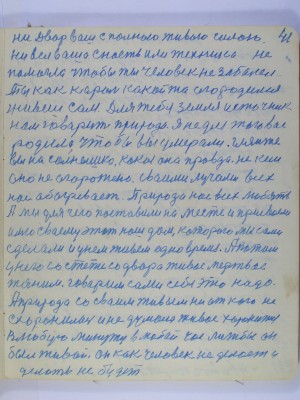 ни двор ваш с полного живого силою. 41
Ни вся ваша снасть или техника не
помогла чтобы ты человек не заболел.
Ты как карой какой та сгородился
живеш сам для тебя земля источник
нам говарит природа. Я не для того вас
родила что бы вы умерали. Гляньте
вы на солнышко, какая она правда. не кем
оно не сгорожено. Своими лучами всех
нас абагревает. Природа нас всех любить
А ты для чего поставили на месте и привыкли
к нему своему этот наш дом, которого мы сами
сделали и у нем живем одно время. А потом
у него со степи со двора живое мертвое
таним. говорим сами себе это надо.
А природа со своим живым ни от кого не
сгородилась и не думала живое хоронить
В любую минуту в любой час лижбы он
был живой. он как человек не делает и
делать не будет